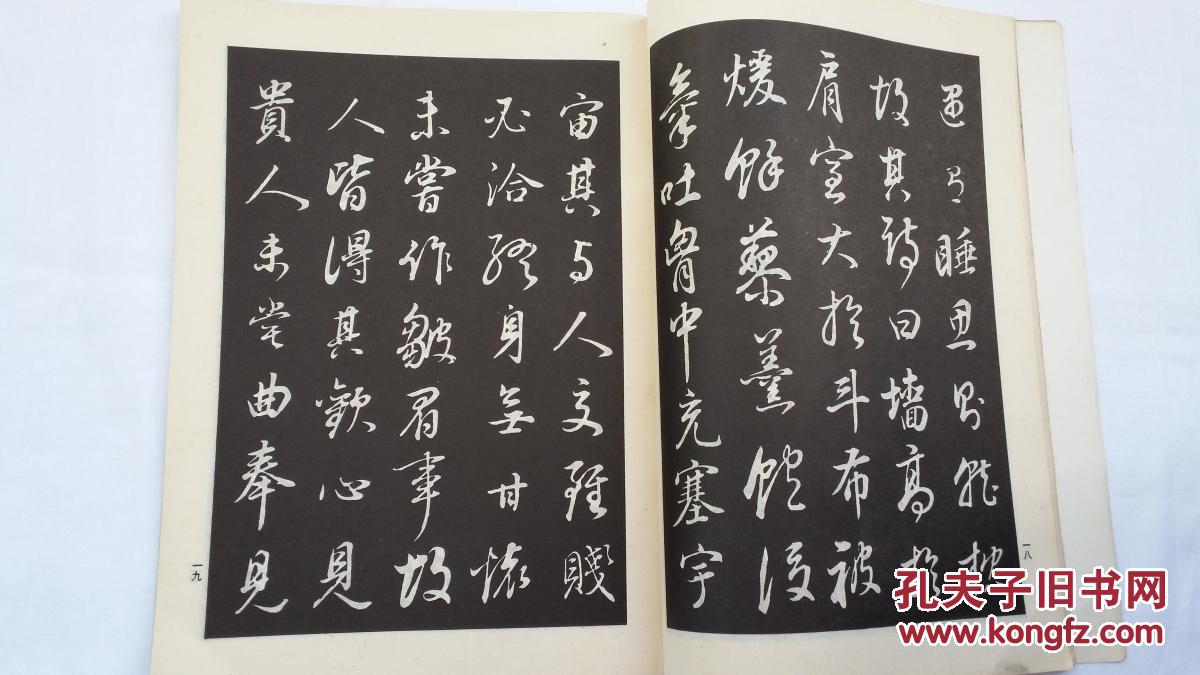 遇有睡思則就枕
故其詩曰墻高於
肩室大於斗布被
煖餘藜羹飽後
氣吐胷中充塞宇
一八
宙其与人交雖賤
必洽終身無甘懷
未嘗作皺眉事故
人皆得其歡心見
貴人未嘗曲奉見
一九
孔夫子旧书网
www.kongfz.com